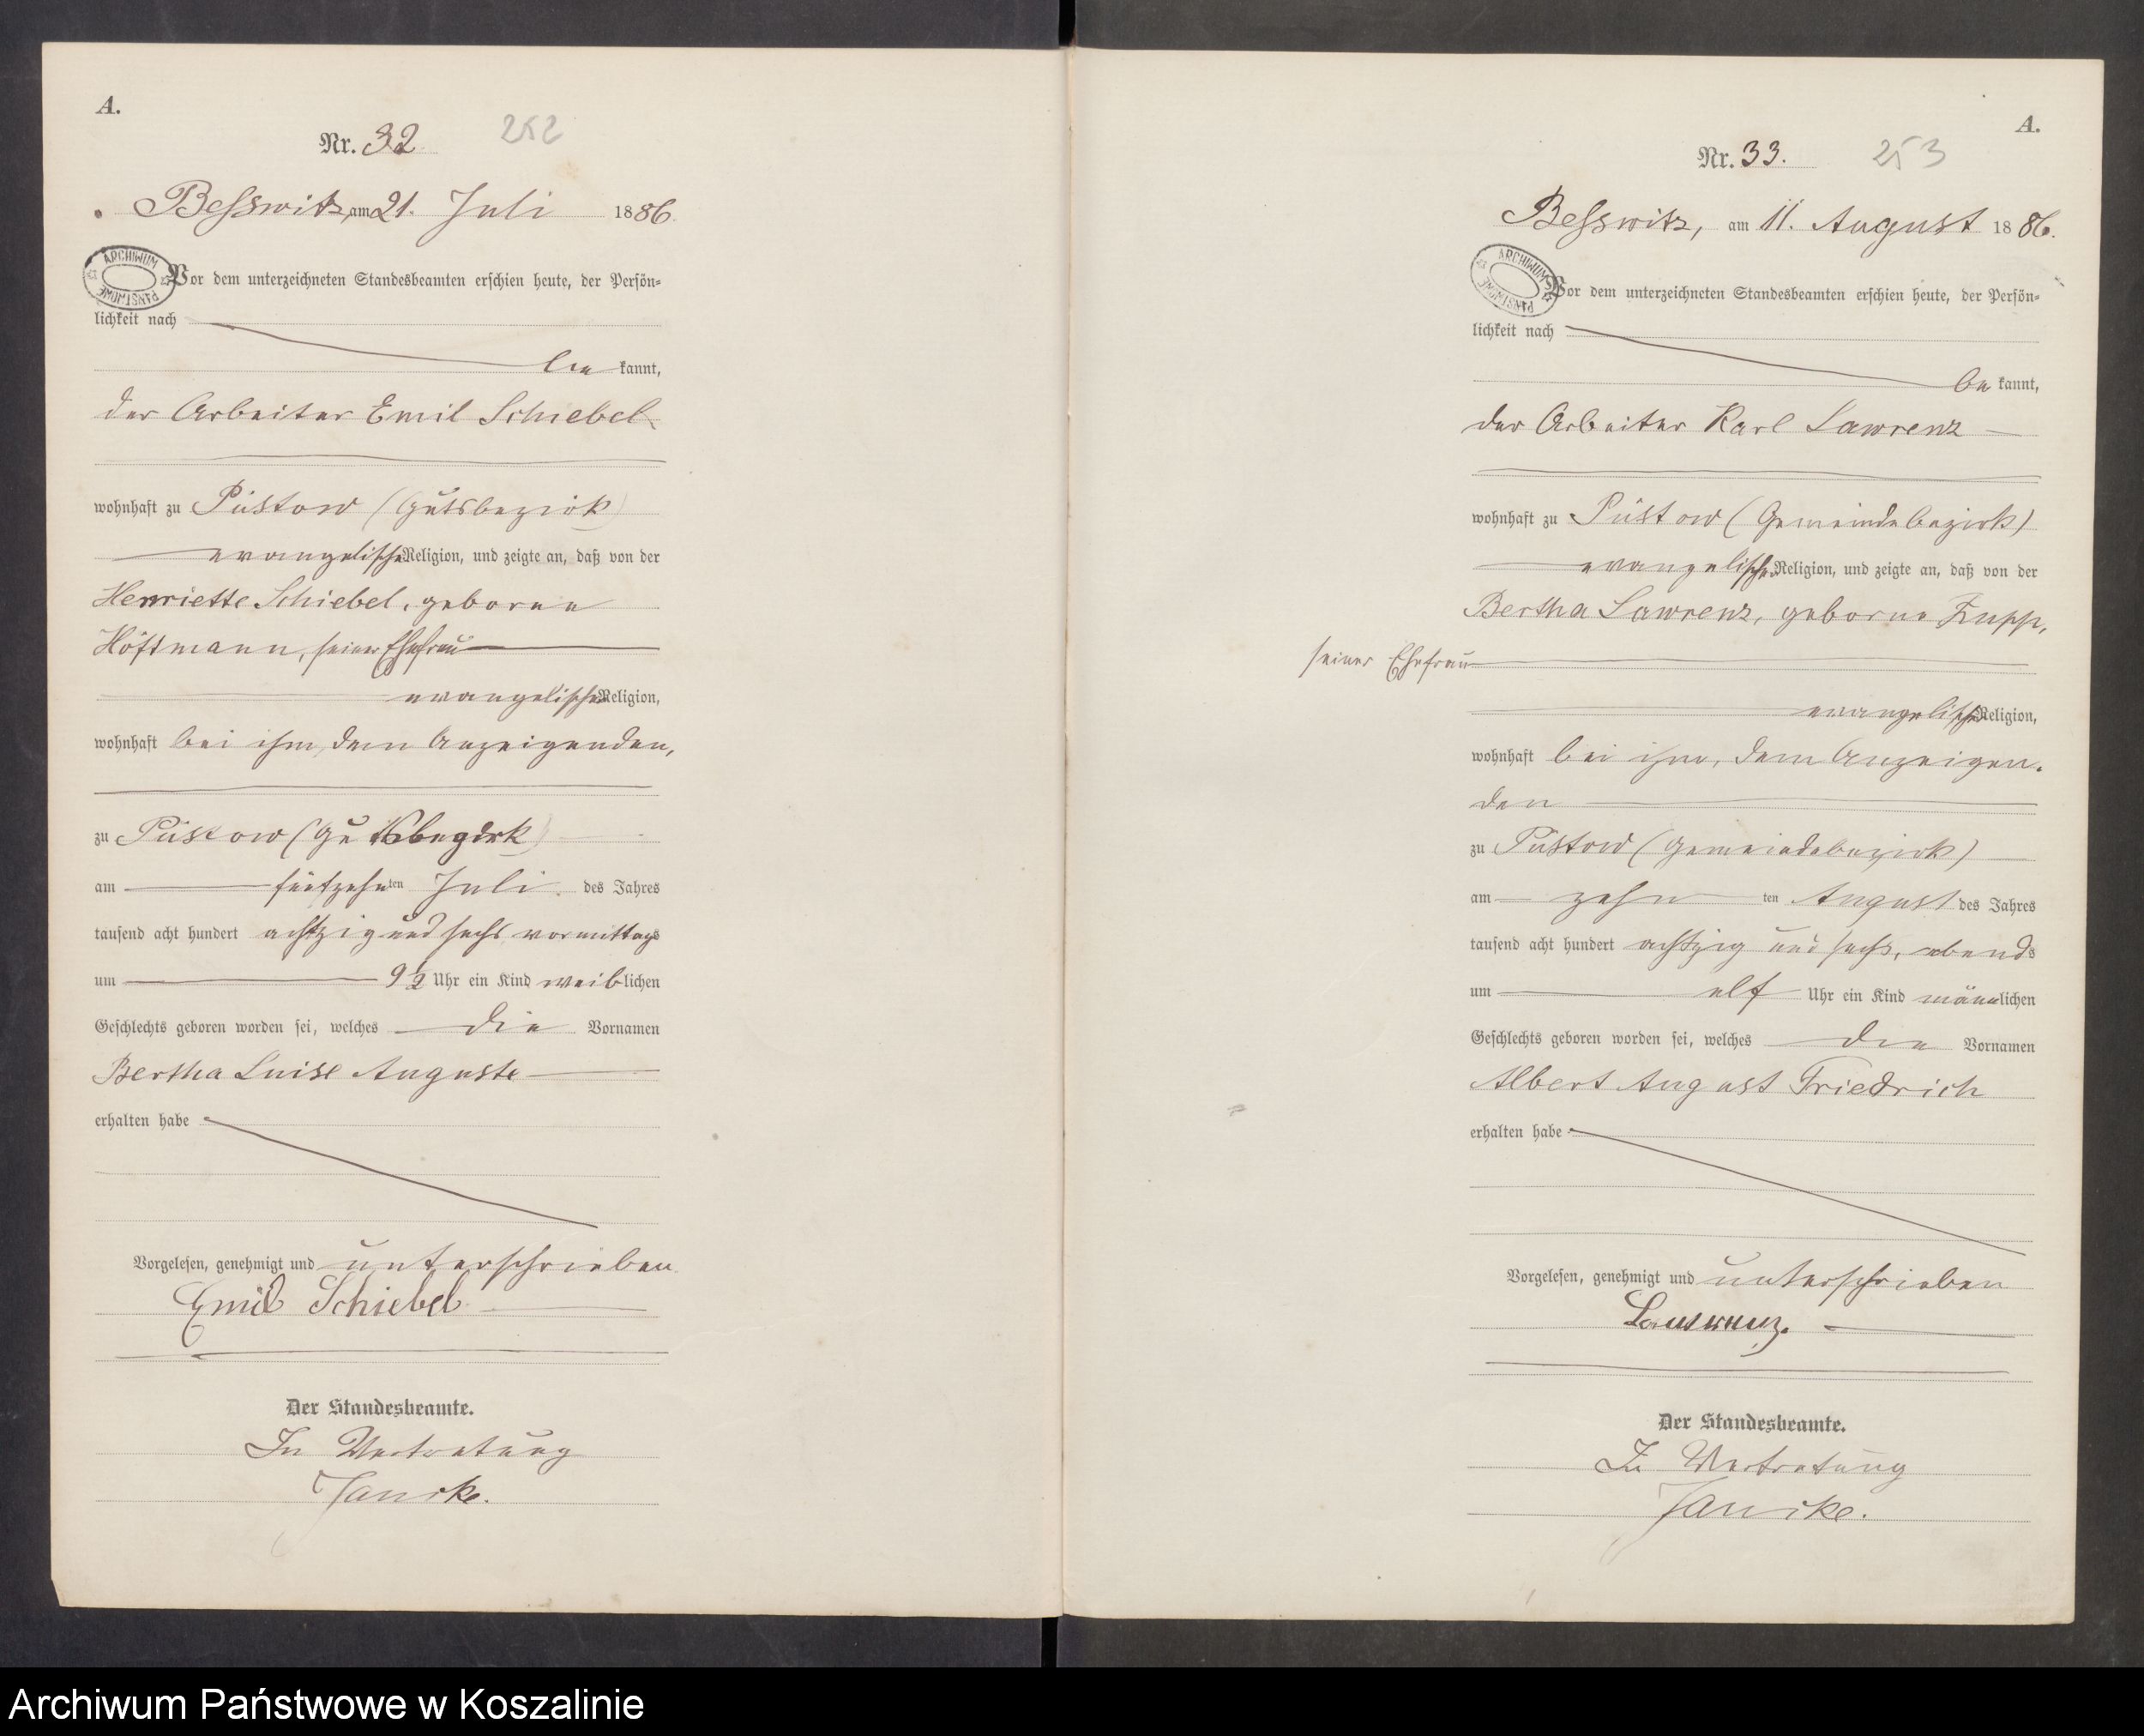 A.
Nr. 32 252
Besswitz, am 21. Juli 1886.
ARCHIWUM PAŃSTWOWE
Vor dem unterzeichneten Standesbeamten erschien heute, der Persön-
lichkeit nach
be kannt,
der Arbeiter Emil Schiebel
wohnhaft zu Püstow (Gutsbezirk)
evangelischer Religion, und zeigte an, daß von der
Henriette Schiebel, geborene
Höftmann, seiner Ehefrau
evangelischer Religion,
wohnhaft bei ihm, dem Anzeigenden,
zu Püstow (Gutsbezirk)
am fünfzehn ten Juli des Jahres
tausend acht hundert achtzig und sechs vormittags
um 9½ Uhr ein Kind weiblichen
Geschlechts geboren worden sei, welches die Vornamen
Bertha Luise Auguste
erhalten habe
Vorgelesen, genehmigt und unterschrieben
Emil Schiebel
Der Standesbeamte.
In Vertretung
Jancke.
A.
Nr. 33. 253
Besswitz, am 11. August 1886.
ARCHIWUM PAŃSTWOWE
Vor dem unterzeichneten Standesbeamten erschien heute, der Persön-
lichkeit nach
be kannt,
der Arbeiter Karl Lawrenz
wohnhaft zu Püstow (Gemeindebezirk)
evangelischer Religion, und zeigte an, daß von der
Bertha Lawrenz, geborne Zupp,
seiner Ehefrau
evangelischer Religion,
wohnhaft bei ihm, dem Anzeigen-
den
zu Püstow (Gemeindebezirk)
am zehn ten August des Jahres
tausend acht hundert achtzig und sechs, abends
um elf Uhr ein Kind männlichen
Geschlechts geboren worden sei, welches die Vornamen
Albert August Friedrich
erhalten habe
Vorgelesen, genehmigt und unterschrieben
Der Standesbeamte.
In Vertretung
Jancke.
Archiwum Państwowe w Koszalinie